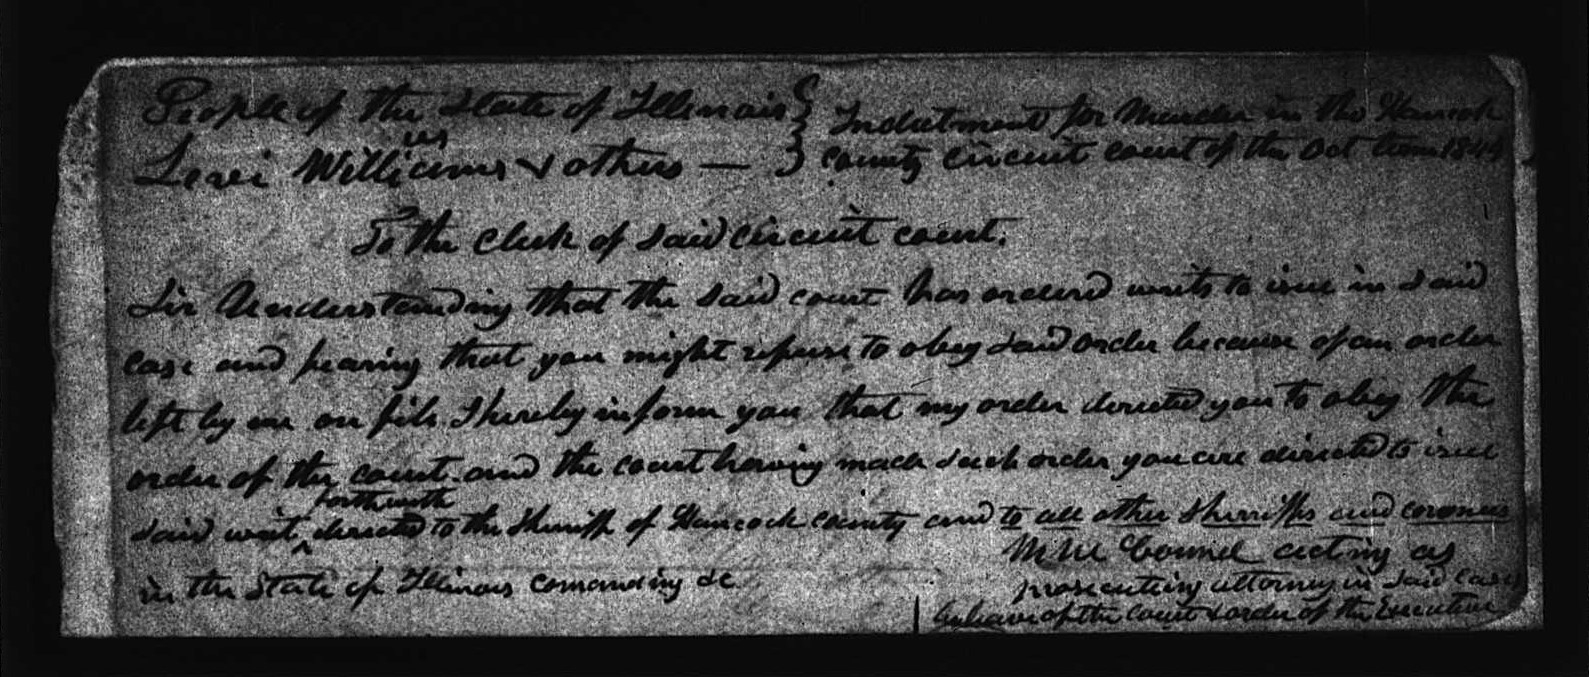 People of the State of Illinois } Indictment for Murder in the Hancock
vs
Levi Williams & others — } county circuit court of the Oct term 1844
To the Clerk of said circuit court.
Sir Understanding that the said court has ordered writs to issue in said
case and fearing that you might refuse to obey said order because of an order
left by me on file I hereby inform you that my order directed you to obey the
order of the court. and the court having made such order you are directed to issue
forthwith
said writ, directed to the Sheriff of Hancock county and to all other Sherriffs and coroners
in the State of Illinois comanding &c
M McConnel acting as
prosecuting attorney in said case
by leave of the court & order of the Executive